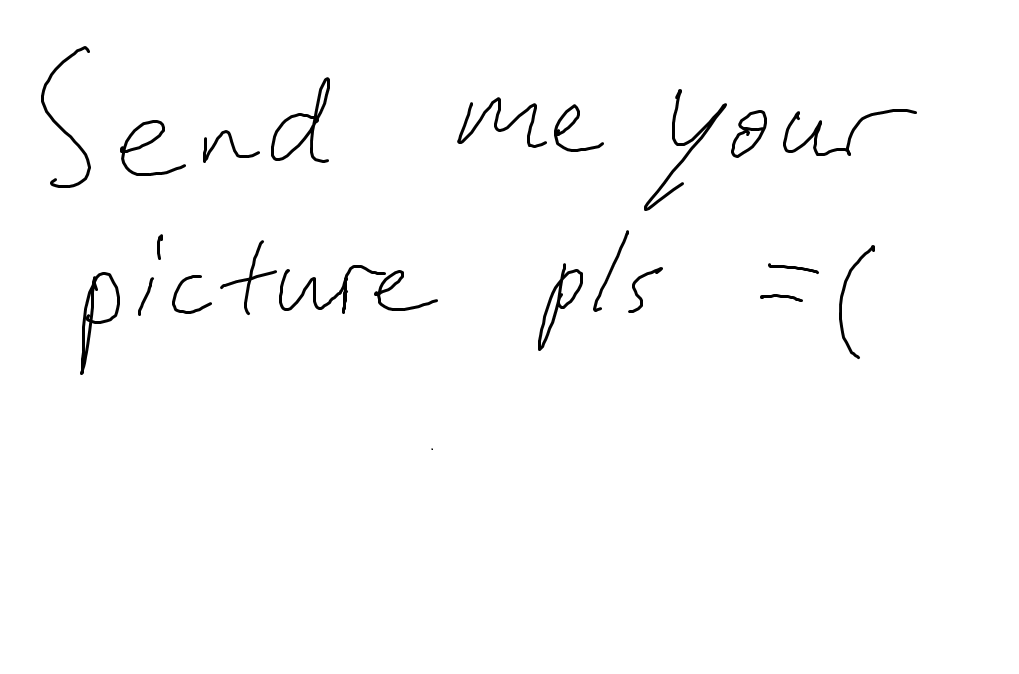 Send me your
picture pls =(